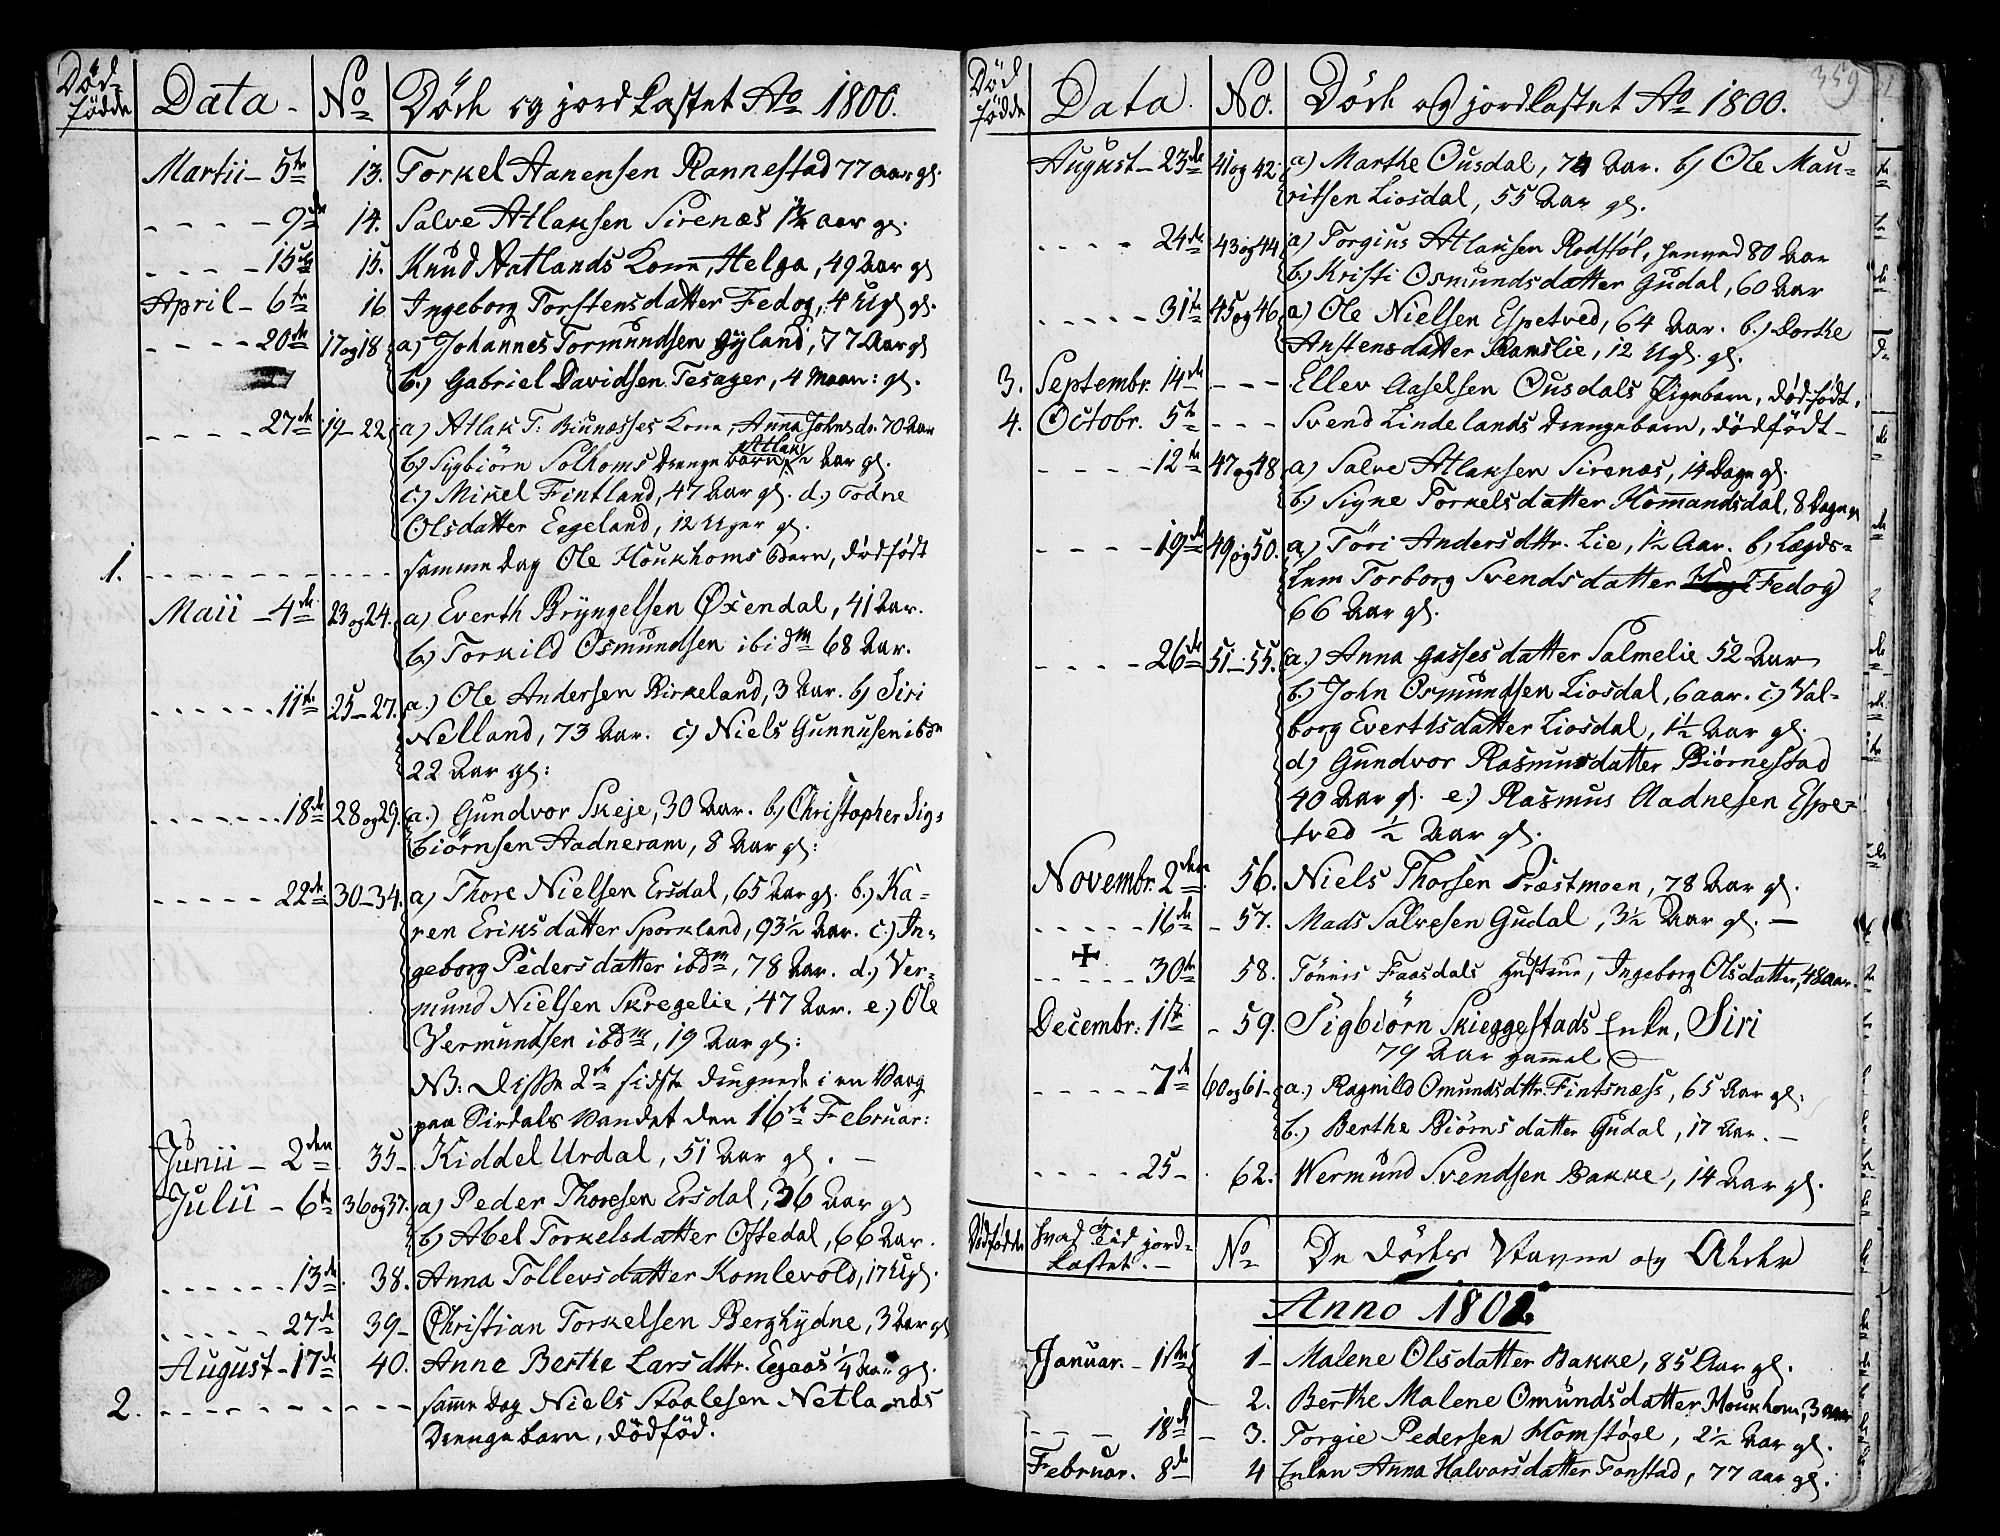 Død-
fødde
Data - No Døde og jordkastet Ao 1800.
Martii - 5te 13. Torkel Aanensen Rannestad 77 aar gl.
- - - - 9de 14. Salve Atlaksen Sirenæs aar gl.
- - - - 15de 15. Knud Hatlands Kone, Helga, 49 Aar gl
April - 6te 16 Ingeborg Torstensdatter Fedog, 4 Ug gl.
- - - - 20de 17 og 18 a) Johannes Tormundsen Gyland, 77 Aar gl
b.) Gabriel Davidsen Tesager, 4 Maan: gl.
- - - - 27de 19-22 a) Atlak T: Biunæsses Kone, Anna Johnsdr. 70 Aar
b) Sigbiörn Solhoms Drenge barn Atlak 1/2 Aar gl.
c.) Mikel Fintland, 47 Aar gl. d.) Todne
Olsdatter Eegeland, 12 Uger gl.
1. - - - - - - - - samme Dag Ole Houkhoms Barn, dödfödt
Maii - 4de 23 og 24. a) Everth Bryngelsen Øxendal, 41 Aar.
b.) Torkild Osmundsen ibidm 68 Aar.
- - - - - 11te 25-27. a.) Ole Andersen Birkeland, 3 Aar. b) Siri
Nelland, 73 Aar. c) Niels Gunnusen ibdm
22 Aar gl:
- - - - - 18de 28 og 29. a.) Gundvor Skeje, 30 Aar. b.) Christopher Sig-
biörnsen Aadneram, 8 Aar gl:
- - - - - 22de 30-34. a) Thore Nielsen Ersdal, 65 Aar gl. b.) Ka-
ren Eriksdatter Sporkland, 93 1/2 Aar. c.) In-
geborg Pedersdatter ibdm, 78 Aar. d.) Ver-
mund Nielsen Skregelie, 47 Aar. e.) Ole
Vermundsen ibdm, 19 Aar gl:
NB: Disse 2de sidste druknede i en Vaag
paa Sirdals Vandet den 16de Februar:
Junii - 2den 35- Kiddel Urdal, 51 Aar gl. -
Julii - 6te 36 og 37. a) Peder Thoresen Ersdal, 36 Aar gl
b) Abel Torkelsdatter Oftedal, 66 Aar.
- - - - - 13de 38. Anna Tollevsdatter Komlevold, 17 Ug.
- - - - - 27de 39- Christian Torkelsen Berghydne, 3 Aar gl
August - 17de 40. Anne Berthe Larsdttr. Egaas 1/4 Aar gl.
2. - - - - - - - - samme Dag Niels Staalesen Netlands
Drenge barn, dödföd.
359
Död
fødde
Data. No. Døde og jordkastet Ao 1800.
August - 23de 41 og 42. a) Marthe Ousdal, 74 Aar. b) Ole Mau-
ritsen Liosdal, 55 Aar gl.
- - - - 24de 43 og 44 a) Torgius Atlaksen Rodstöl, henved 80 Aar
b.) Kristi Osmundsdatter Gudal, 60 Aar
- - - - 31te 45 og 46 a) Ole Nielsen Espetved, 64 Aar. b.) Dorthe
Austensdatter Ramslie, 12 Ug. gl.
3. Septembr. 14de - - - Ellev Aaselsen Ousdals Pigebarn, dödfödt.
4. Octobr. 5te - - - Svend Lindelands Drengebarn, dödfödt -
- - - - 12te 47 og 48 a) Salve Atlaksen Sirenæs, 14 Dage gl.
b.) Signe Torkelsdatter Homandsdal, 8 Dage gl
- - - - 19de 49 og 50. a) Töri Andersdttr. Lie, 1 1/2 Aar. b) Lægds-
lem Torborg Svendsdatter Fedog
66 Aar gl.
- - - - 26de 51-55. a.) Anna Gassesdatter Salmelie 52 Aar
b.) John Osmundsen Liosdal, 6 aar. c.) Val-
borg Everthsdatter Liosdal, 1 1/2 Aar gl.
d) Gundvor Rasmusdatter Biörnestad
40 Aar gl. e.) Rasmus Aadnesen Espe-
tved 1/2 Aar gl.
Novembr. 2den. 56. Niels Thorsen Præstmoen, 78 Aar gl.
- - - - 16de - 57. Mads Salvesen Gudal, 3 1/2 Aar gl. -
- - - - 30te 58. Tönnis Faasdals Hustrue, Ingeborg Olsdatter, 48 aar.
Decembr: 1ste - 59. Sigbiörn Skieggestads Enke, Siri
79 Aar gammel
- - - - 7de 60 og 61- a.) Ragnild Omundsdttr. Fintsnæss, 65 Aar gl.
b.) Berthe Biörnsdatter Gudal, 17 Aar. -
- - - - 25 - 62. Wermund Svendsen Bakke, 14 Aar gl.
Dödfødde hvad Tid jord-
kastet. - No De Dödes Navne og Alder
Anno 1801.
Januar. - 11te 1- Malene Olsdatter Bakke, 85 Aar gl.
2. Berthe Malene Omundsdatter Houkhom, 3 aar
- - - 18de - 3. Torgie Pedersen Homstöel, 2 1/2 Aar gl.
Februar. 8de 4 Enken Anna Halvorsdatter Tonstad, 77 aar gl.